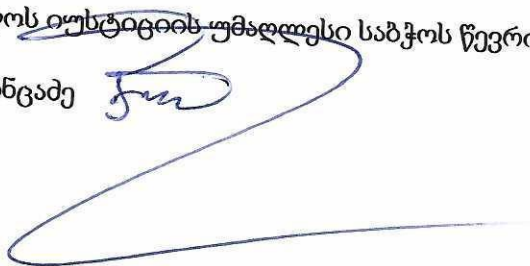 ოს იუსტიციის უმაღლესი საბჭოს წევრი
ნცაძე